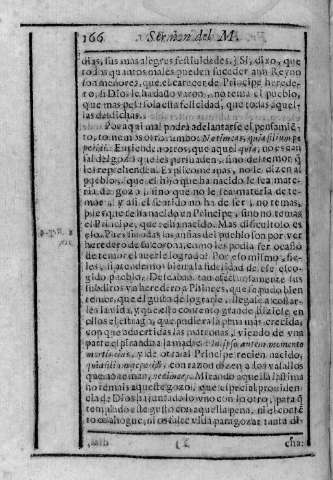 166 Sermon del M.
dias, sus mas alegres festiuidades.) Si, dixo, que
todas quantos males pueden suceder a un Reyno
son menores, que el carecer de Principe herede-
ro, si Dios le ha dado varon, no tema el pueblo,
que mas pesa sola esta felicidad, que todas aquel-
las desdichas.
Por aqui mal podrá adelantarse el pensamiẽ-
to, tomemos otro rumbo. Ne timeas, quia filium pe
peristi. Entienden otros, que aquel quia, no es cau
sal del gozo a que les persuaden, sino del temor, q̃
les reprehenden. Expliceme mas, no le dizen al
pueblo, que el hijo que ha nacido le sea mate-
ria de gozo, sino que no le sea materia de te-
mor: y assi el sentido no ha de ser, no temas,
pues que te ha nacido vn Principe, sino no temas
el Principe, que te ha nacido. Mas dificultoso es
esso. Pues si todas las ansias del pueblo son por ver
heredero de su corona, como les podia ser ocasiõ
de temor el auerle logrado? Por esso mismo, fie-
les, si atendemos bien a la fidelidad de esse esco-
gido pueblo. Deseauan tan afectuosamente sus
subditos vn heredero a Phinees, que se pudo bien
temer, que el gusto de lograrle, llegase a costar-
les la vida, y que esse contento grande hiziesse en
ellos el estrago, que pudiera la pena mas crecida,
con que aduertidas las matronas, viendo de vna
parte espirando a la madre: In ipso autem momento
mortis eius, y de otra al Principe recien nacido,
con razon dizen a los vasallos
que no teman, ne timeas. Mirando aquella lastima
no temais aqueste gozo, que especial prouiden-
cia de Dios ha juntado lo vno con lo otro, para q̃
templado este gusto con aquella pena, ni el contẽ
to os ahogue, ni os falte vida para gozar tanta di-
cha: